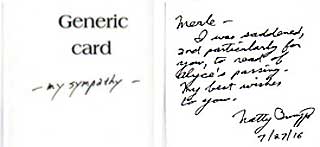 Generic
card
- my sympathy -
Merle -
I was saddened,
and particularly for
you, to read of
Alyce's passing.
My best wishes
to you.
Natty Bumppo
7/27/16